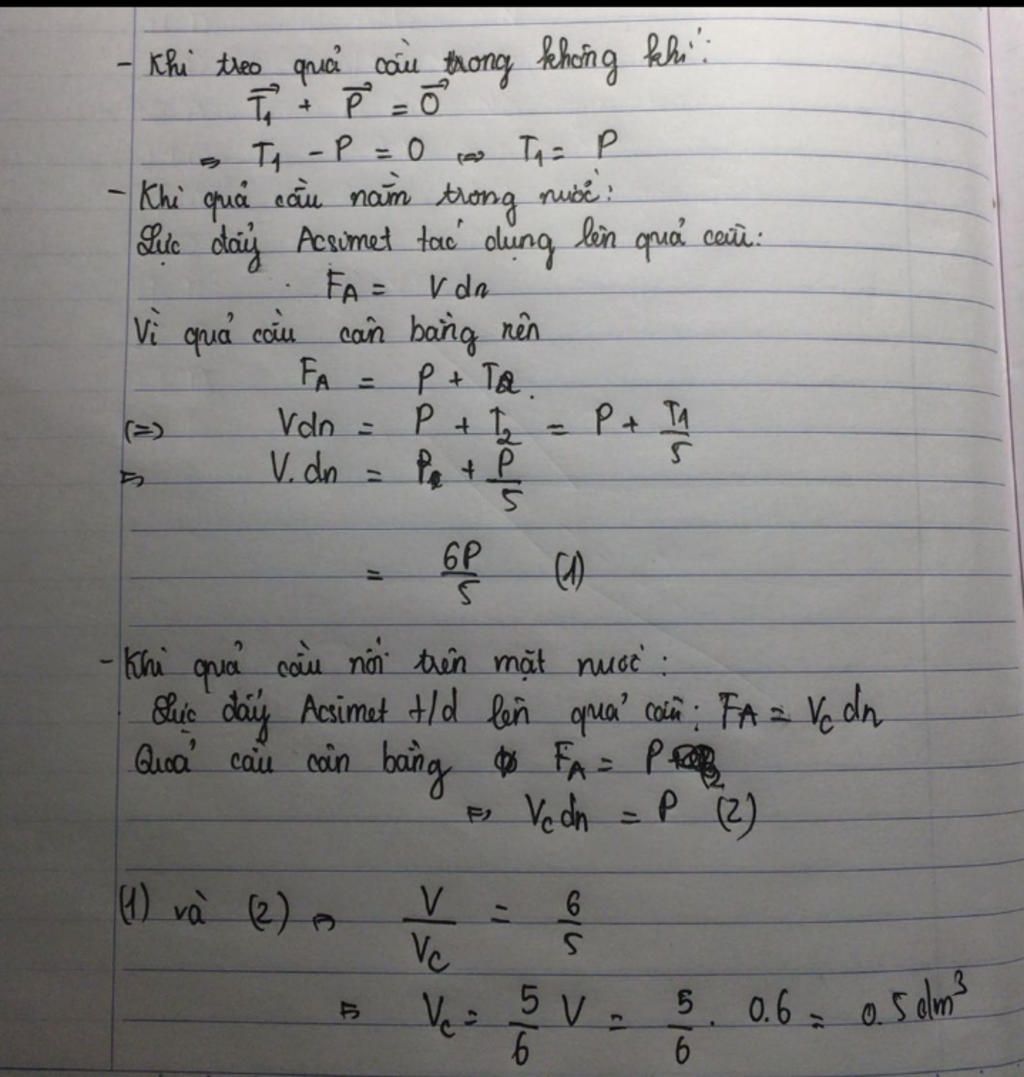 - Khi treo quả cầu trong không khí:
T₁⃗ + P⃗ = 0⃗
⇒ T₁ - P = 0 ⇔ T₁ = P
- Khi quả cầu nằm trong nước:
Lực đẩy Acsimet tác dụng lên quả cầu:
F_A = V dn
Vì quả cầu cân bằng nên
F_A = P + T₂.
(=) Vdn = P + T₂ = P + T₁/5
⇒ V.dn = P + P/5
= 6P/5 (1)
- Khi quả cầu nổi trên mặt nước:
Lực đẩy Acsimet t/d lên quả cầu: F_A = V_C dn
Quả cầu cân bằng F_A = P
⇒ V_C dn = P (2)
(1) và (2) ⇒ V/V_C = 6/5
⇒ V_C = 5/6 V = 5/6 . 0.6 = 0.5 dm³